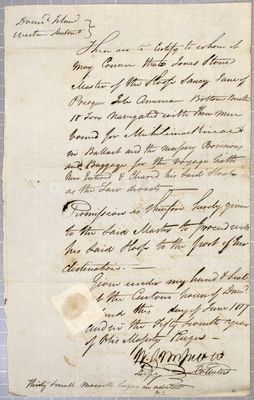 Drumd Island
Western District
These are to Certify to whom it
may Concern that Jonas Stone
Master of the Sloop Saucy Jane of
Presque Isle American Bottom Burth
18 Tons Navigated with Three Men
bound for Michilimackinac
in Ballast and the necessary Provisions
and Baggage for the voyage hath
here Entered & Cleared his Said Sloop
as the Law directs
Permission is therefore hereby given
to the Said Master to proceed with
his Said Sloop to the port of her
destination.
Given under my hand & Seal
at the Customs house of Drumd
Island this day of June 1817
and in the Fifty Seventh year
of His Majestys Reign
Depy Collector
Thirty Small Maccocks Sugar in addition